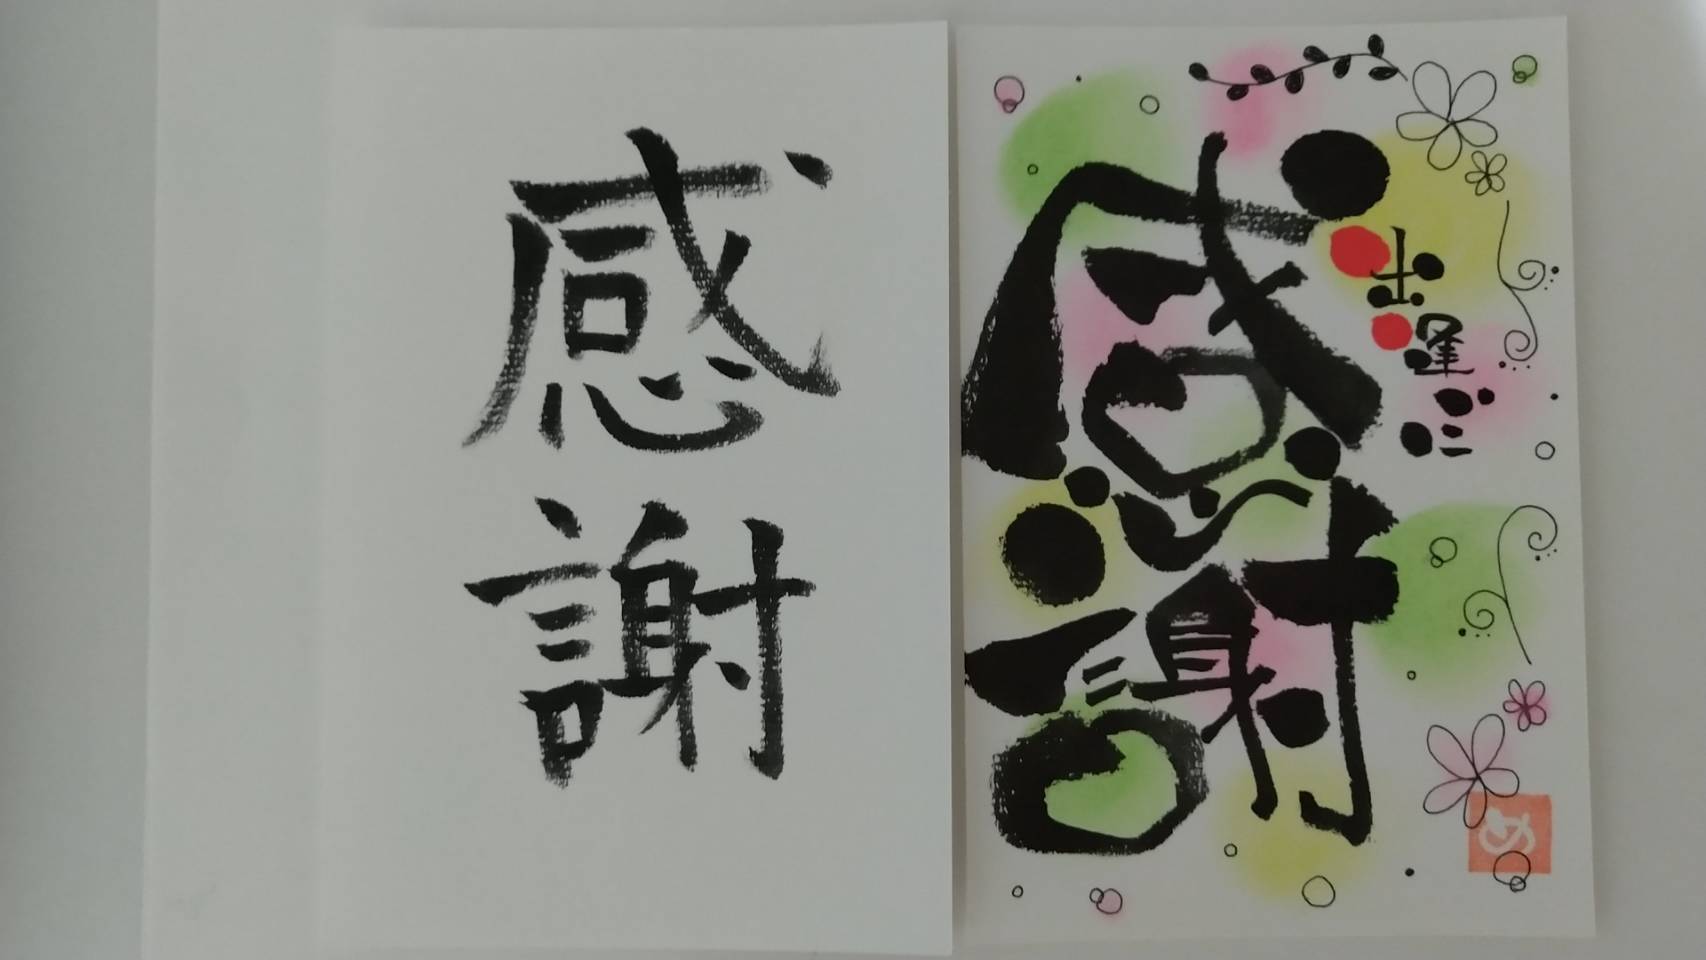 感謝
出逢いに
感謝
め